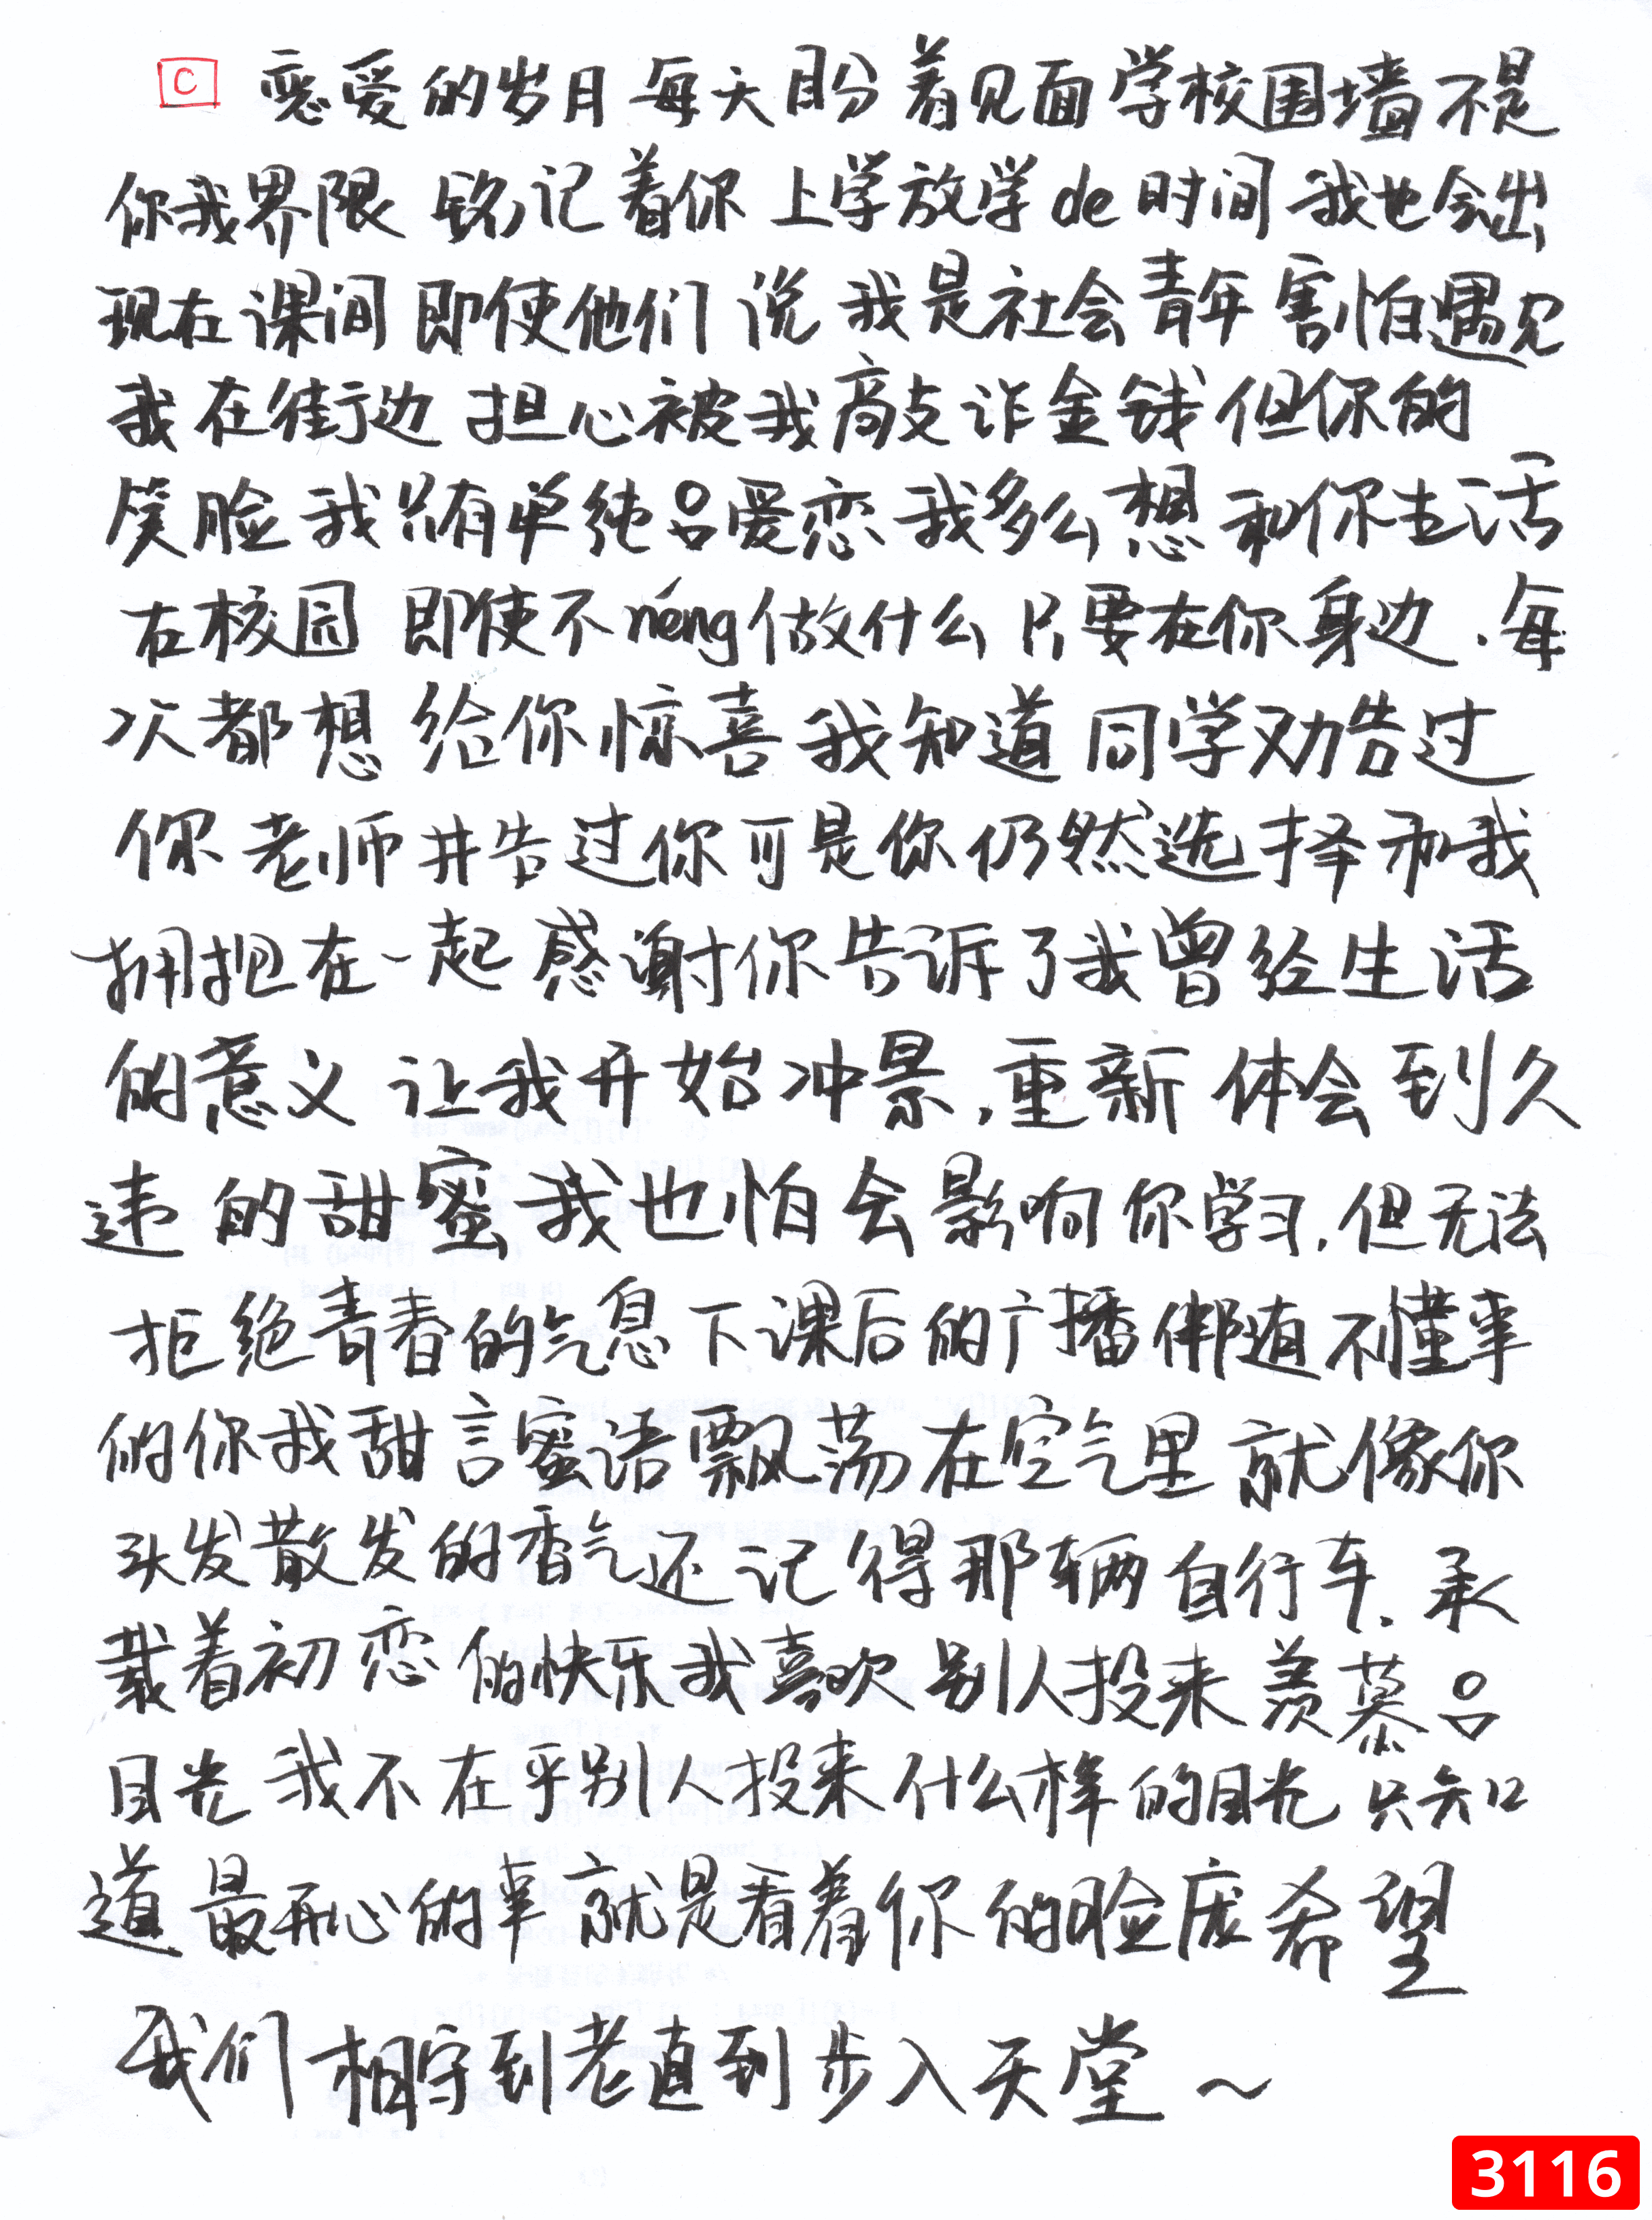 C 恋爱的岁月每天盼着见面学校围墙不是
你我界限 铭记着你上学放学de时间我也会出
现在课间 即使他们说我是社会青年害怕遇见
我在街边 担心被我敲诈金钱但你的
笑脸我只有单纯呂爱恋我多么想和你生活
在校园 即使不néng做什么只要在你身边.每
次都想给你惊喜我知道同学劝告过
你老师井告过你可是你仍然选择和我
拥抱在一起感谢你告诉了我曾经生活
的意义 让我开始冲景,重新体会到久
违的甜蜜我也怕会影响你学习,但无法
拒绝青春的气息下课后的广播伴随不懂事
的你我甜言蜜语飘荡在空气里就像你
头发散发的香气还记得那辆自行车.承
载着初恋的快乐我喜欢别人投来羡慕呂
目光我不在乎别人投来什么样的目光只知
道最开心的事就是看着你的脸庞希望
我们相守到老直到步入天堂~
3116